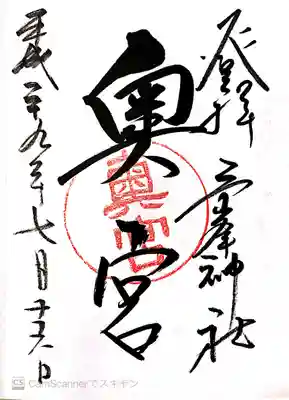 登拝 三峯神社
奥宮
奥宮
平成二十九年七月廿六日
CS CamScannerでスキャン